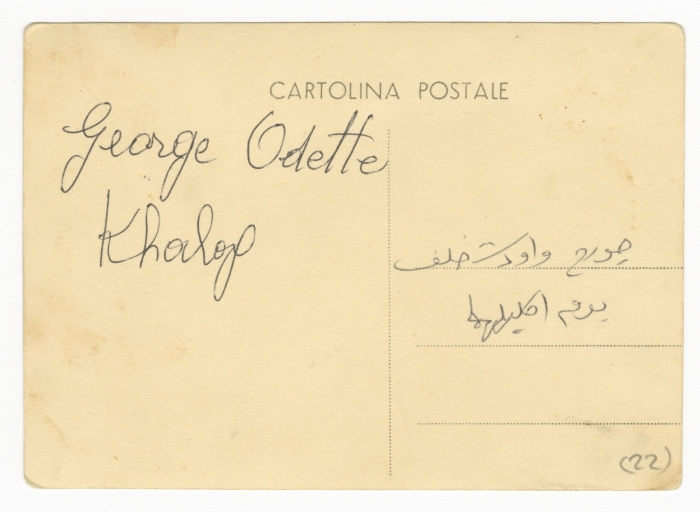 CARTOLINA POSTALE
George Odette
Khalaf
جورج واودت خلف
يوم اكليلهما
(22)